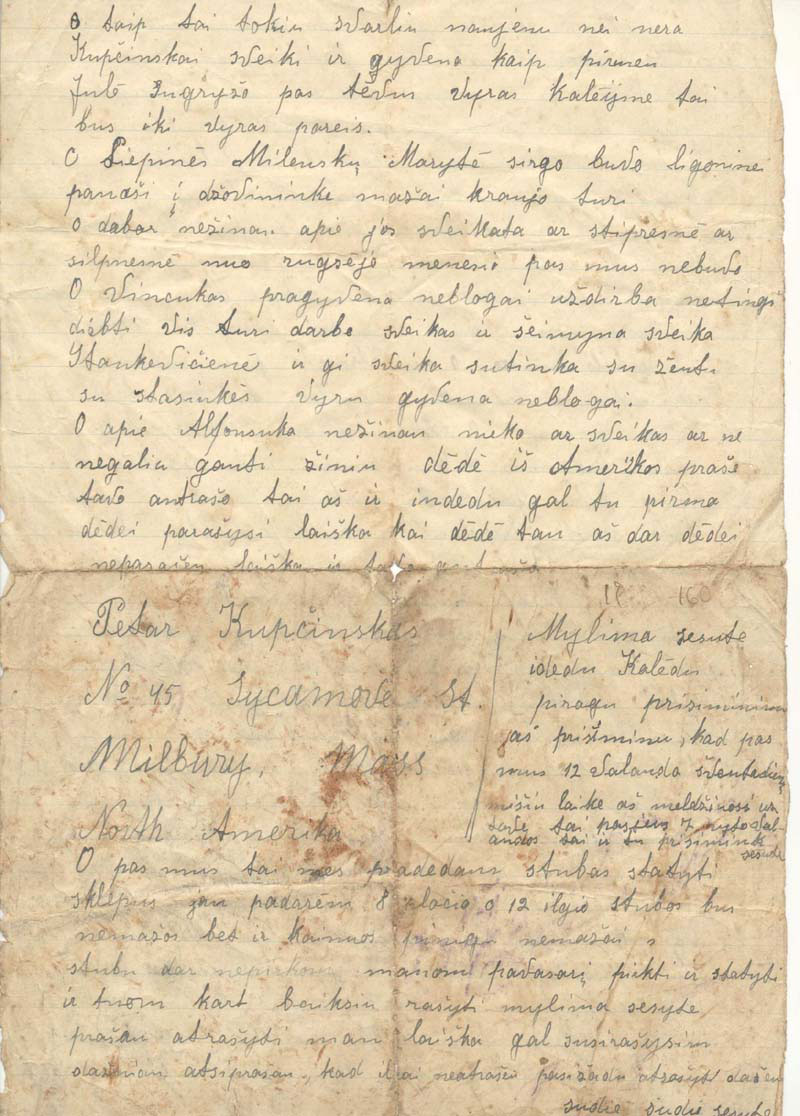 o taip tai tokiu svarbiu naujienu nei nera
Kupčinskai sveiki ir gyvena kaip pirmen
Julė sugryžo pas tėvus vyras kalėjme tai
bus iki vyras pareis.
O Liepinės Milenskų Marytė sirgo buvo ligoninei
panaši į džovininke mažai kraujo turi
O dabar nežinau apie jos sveikata ar stipresnė ar
silpnesnė nuo rugsėjo menesio pas mus nebuvo
O Vincukas pragyvena neblogai uždirba netingi
dirbti vis turi darbo sveikas ir šeimyna sveika
Stankevičienė ir gi sveika sutinka su žentu
su stasiukės vyru gyvena neblogai.
O apie Alfonsuka nežinau nieko ar sveikas ar ne
negaliu gauti žiniu dėdė iš Amerikos praše
tavo antrašo tai aš ir indedu gal tu pirma
dėdei parašysi laiška kai dėdė tau aš dar dėdei
neparašiau laiška ir tavo antraša
Petar Kupčinskas
No 45 Sycamore St.
Milbury, Mass
North Amerika
Mylima sesute
idedu Kalėdu
piragu prisiminimu
aš prisiminu, kad pas
mus 12 valanda šventadieni
mišiu laike aš meldžiuosi uz
tave tai pas jus 7 ryto val-
andos tai ir tu prisimink
sesute
O pas mus tai mes pradedam stubas statyti
sklepus jau padarėm 8 plocio o 12 ilgio stubos bus
nemažos bet ir kainuos pinigu nemažai
stubu dar nepirkom manom pavasarį pirkti ir statyti
ir tuom kart baiksiu rašyti mylima sesyte
prašau atrašyti man laiška gal susirašysim
dažniau atsiprašau, kad ilgai neatrašiau pasižadu atrašyti dažniau
sudie sudie sesute